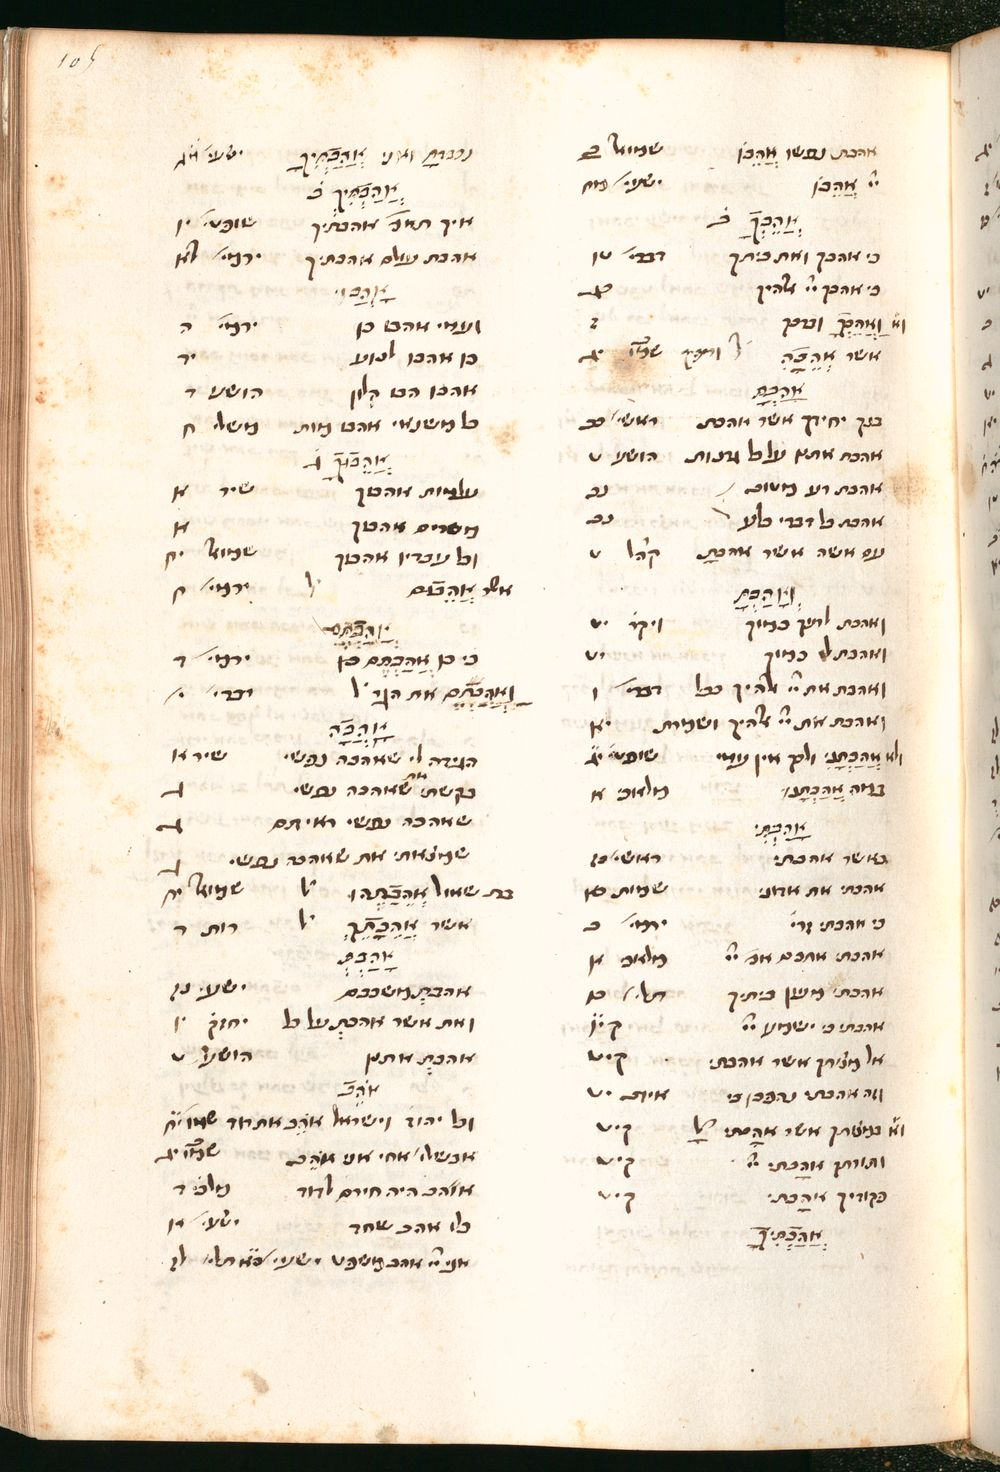 105
אהבת נפשו אֲהֵבוֹ שמואל
יי אֲהֵבוֹ ישעי׳ מח
אֲהֵבְךָ ב
כי אהבך ואת ביתך דברי׳ טו
כי אהבך יי אלהיך
וַאֲהֵבְךָ וברך ז
אשר אֲהֵבָהּ
אָהַבְתָּ
בנך יחידך אשר אהבת ראשי׳ כב
אהבת אתנן על כל גרנות הושע ט
אהבת רע מטוב נב
אהבת כל דברי בלע נב
עם אשה אשר אהבת קהל ט
וְאָהַבְתָּ
ואהבת לרעך כמוך ויקר׳ יט
ואהבת לו כמוך יט
ואהבת את יי אלהיך בכל דברי׳ ו
ואהבת את יי אלהיך ושמרת יא
ולא אֲהַבְתָּנִי ולך אין עמי שופטי׳
במה אֲהַבְתָּנוּ מלאכי א
אָהַבְתִּי
כאשר אהבתי ראשי׳ כז
אהבתי את אדוני שמות כא
כי אהבתי זרי׳ ירמי׳ ב
אהבתי אתכם אמ׳ יי מלאכי א
אהבתי מעון ביתיך תלי׳ כו
אהבתי כי ישמע יי קיו
אל מצותיך אשר אהבתי קיט
וזה אהבתי נהפכו בי איוב יט
במצותיך אשר אהבתי קיט
ותורתך אהבתי קיט
פקודיך אהבתי קיט
אֲהַבְתִּיךָ
נכבדת ואני אֲהַבְתִּיךָ ישעי׳ מג
אֲהַבְתִּיךְ ב
איך תאמר אהבתיך שופטי׳ יו
אהבת עולם אהבתיך ירמי׳ לא
אָהֲבוּ
ועמי אהבו כן ירמי׳ ה
כן אהבו לנוע יד
אהבו הבו קלון הושע ד
כל משנאי אהבו מות משלי ח
אֲהֵבוּךָ ג
עלמות אהבוך שיר א
מישרים אהבוך א
וכל עבדיו אהבוך שמואל יח
אשר אֲהֵבוּם ל׳ ירמי׳ ח
אֲהַבְתֶּם
כי כן אֲהַבְתֶּם בני ירמי׳ ד
וַאֲהַבְתֶּם את הגר ל׳ דברי׳ י
אָהֲבָה
הגידה לי שאהבה נפשי שיר א
בקשתי את שאהבה נפשי ג
שאהבה נפשי ראיתם ג
שמצאתי את שאהבה נפשי ג
בת שאול אֲהֵבַתְהוּ ל׳ שמואל יח
אשר אֲהֵבַתֶךְ ל׳ רות ד
אָהַבְתְּ
אהבת משכבם ישעי׳ נז
ואת אשר אהבת על כל יחזק׳ יו
אהבת אתנן הושע ט
אֹהֵב
וכל יהוד׳ וישראל אהב את דוד שמו׳ יח
אבשלו׳ אחי אני אהב שמו׳ יג
אוהב היה חירם לדוד מלכי׳ ד
כלו אהב שחד ישעי׳ א
אני יי אהב משפט ישעי׳ סא תלי׳ לז